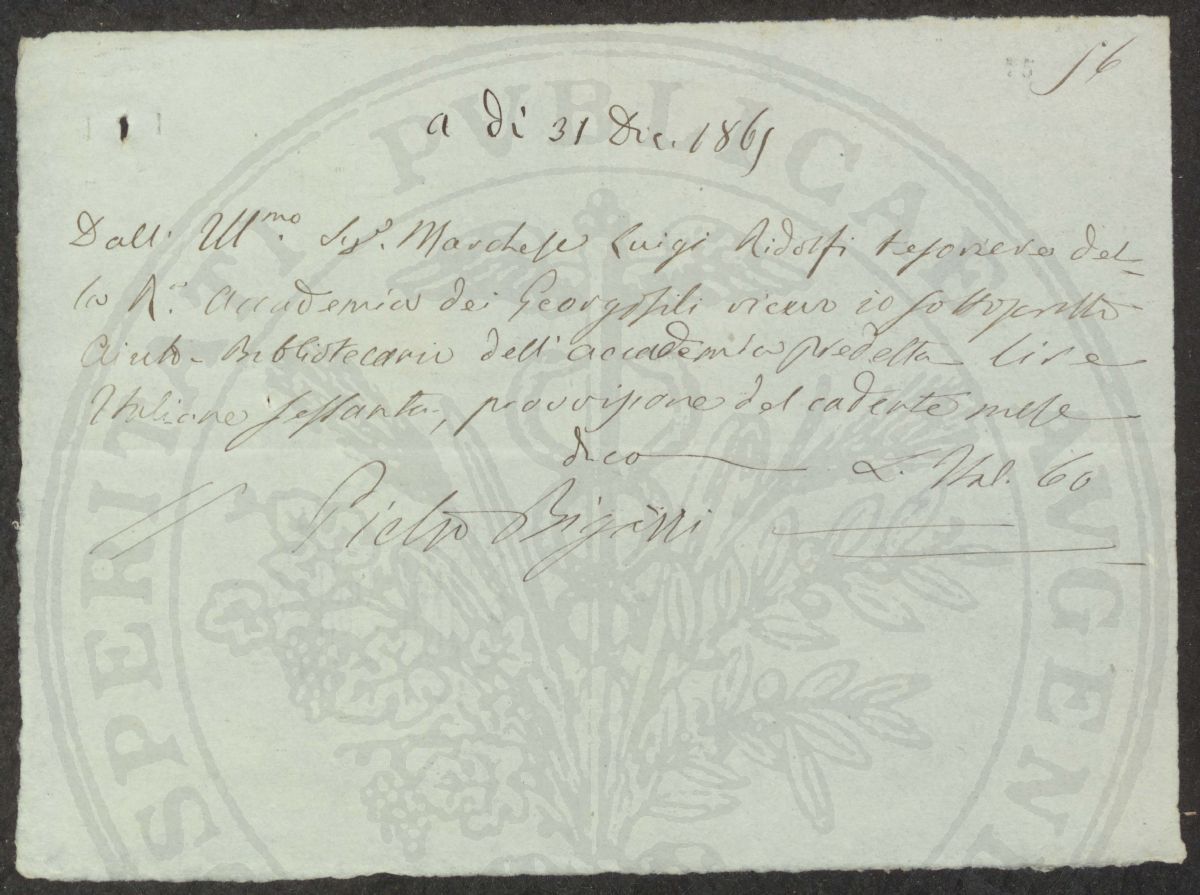 56
a dì 31 Dic. 1865
Dall' Ill.mo Sig.r Marchese Luigi Ridolfi tesoriere del-
la R.a Accademia dei Georgofili ricevo io sottoscritto
Aiuto-Bibliotecario dell'accademia predetta Lire
Italiane sessanta, provvisione del cadente mese
dico L. Ital. 60
Pietro Bigazzi
PROSPERITATI PVBLICAE AVGENDAE